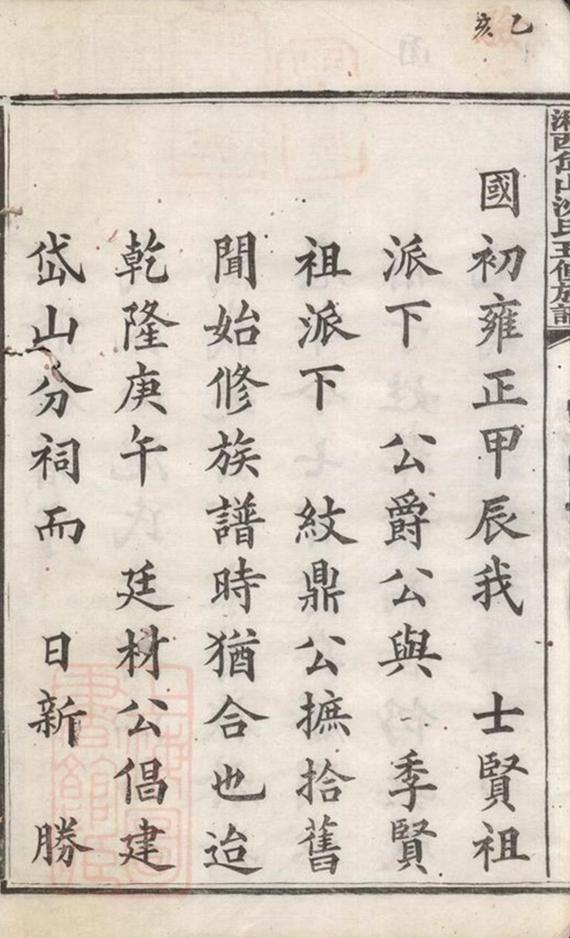 乙亥
湘西岱山沈氏五修族譜
國初雍正甲辰我 士賢祖
派下 公爵公與 季賢
祖派下 紋鼎公摭拾舊
聞始修族譜時猶合也迨
乾隆庚午 廷材公倡建
岱山分祠而 日新 勝